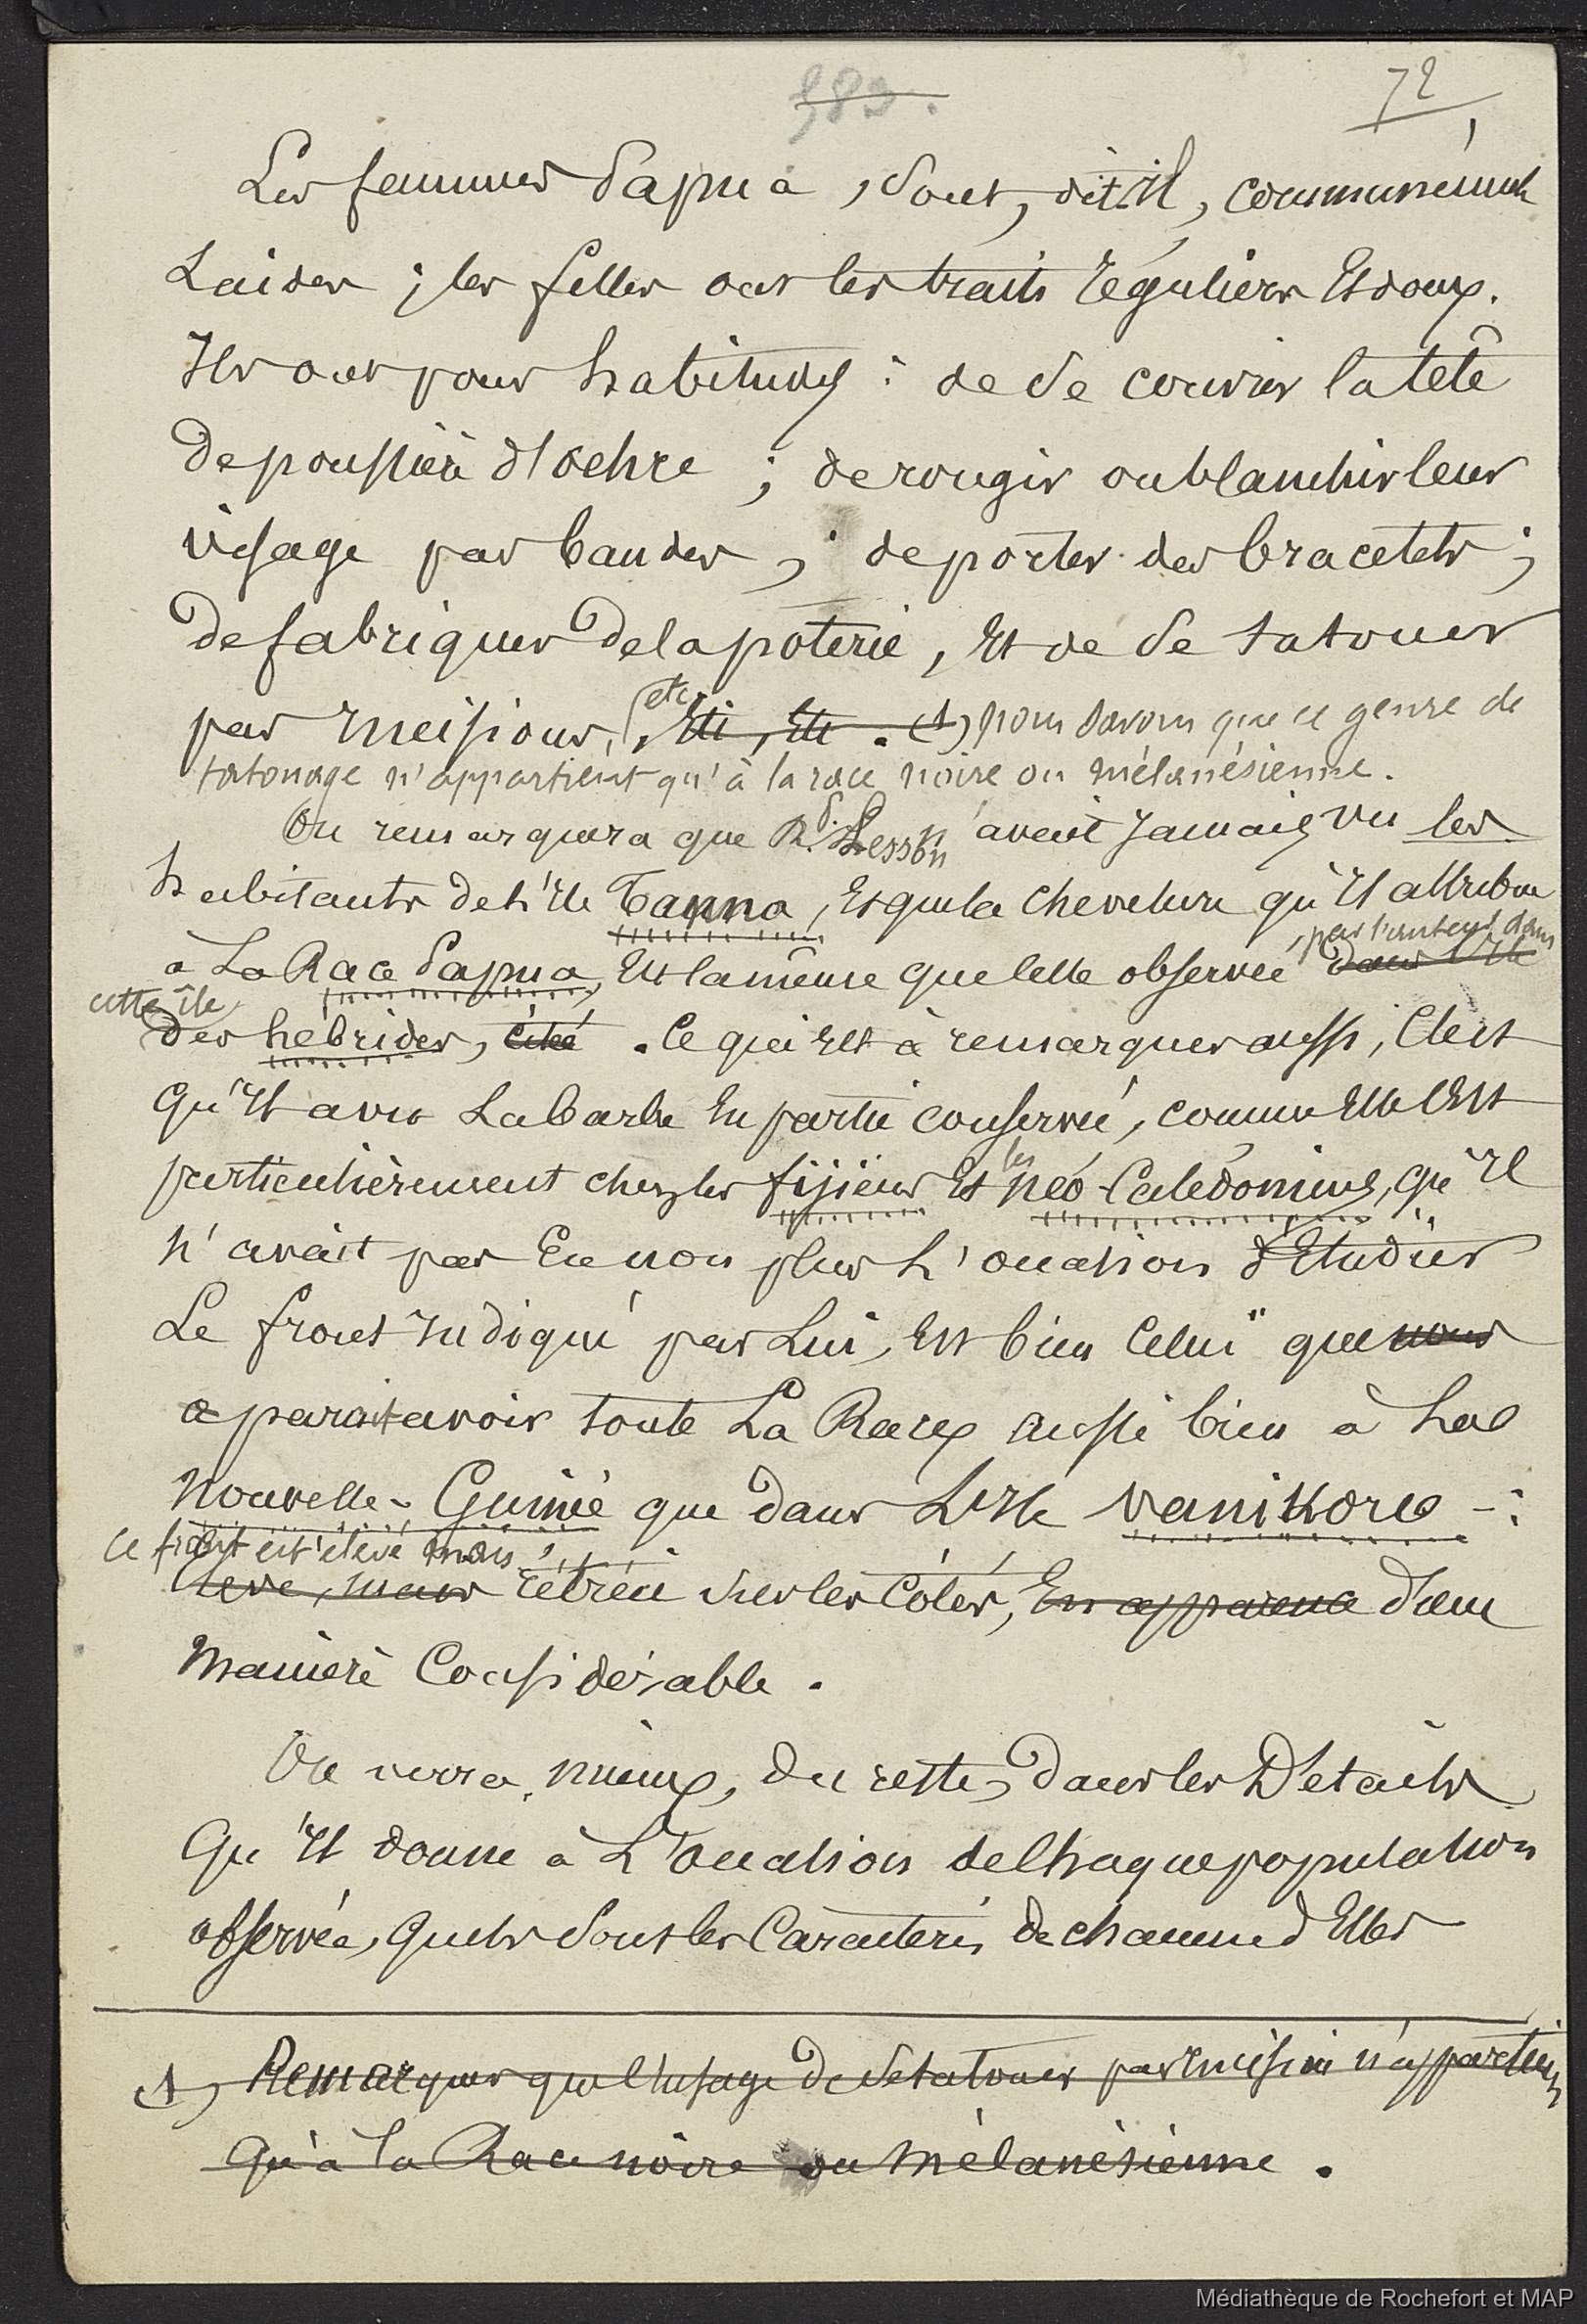 583.
72
Les femmes Papua, sont, dit-il, communément
Laides ; les filles ont les traits réguliers Et doux.
Ils ont pour habitudes : de se couvrir la tête
De poussière d'ochre ; de rougir ou blanchir leur
visage par bandes ; de porter des bracelets ;
De fabriquer de la poterie, Et de se tatouer
par Incisions, etc. Etc, Etc. (1) nous savons que ce genre de
tatouage n'appartient qu'à la race noire ou mélanésienne.
On remarquera que R. P. Lesson n'avait Jamais vu les
habitants de l'île Tanna, Et que la chevelure qu'Il attribue
à La Race Papua, Est la même que celle observée par l'auteur dans dans l'Ile
cette île
des hébrides, citée. Ce qui Est à remarquer aussi, C'est
Qu'Il a vu La barbe En partie conservée, comme Elle l'Est
particulièrement chez les fijiens Et les néo-Calédoniens, qu'Il
n'avait pas Eu non plus L'occasion d'Etudier
Le front Indiqué par Lui, Est bien Celui que nous
a parait avoir toute La Race aussi bien à La
Nouvelle-Guinée que dans L'Ile Vanikoro - :
Ce front est élevé mais
Elevé, mais rétréci sur les Côtés, En apparence d'une
Manière Considérable.
On verra mieux, du reste, dans les Détails
Qu'Il donne à L'occasion de Chaque population
observée, quels sont les Caractères de chacune d'Elles
(1) Remarquer que l'usage De se tatouer par Incision n'appartient
Qu'à la Race noire ou Mélanésienne.
Médiathèque de Rochefort et MAP